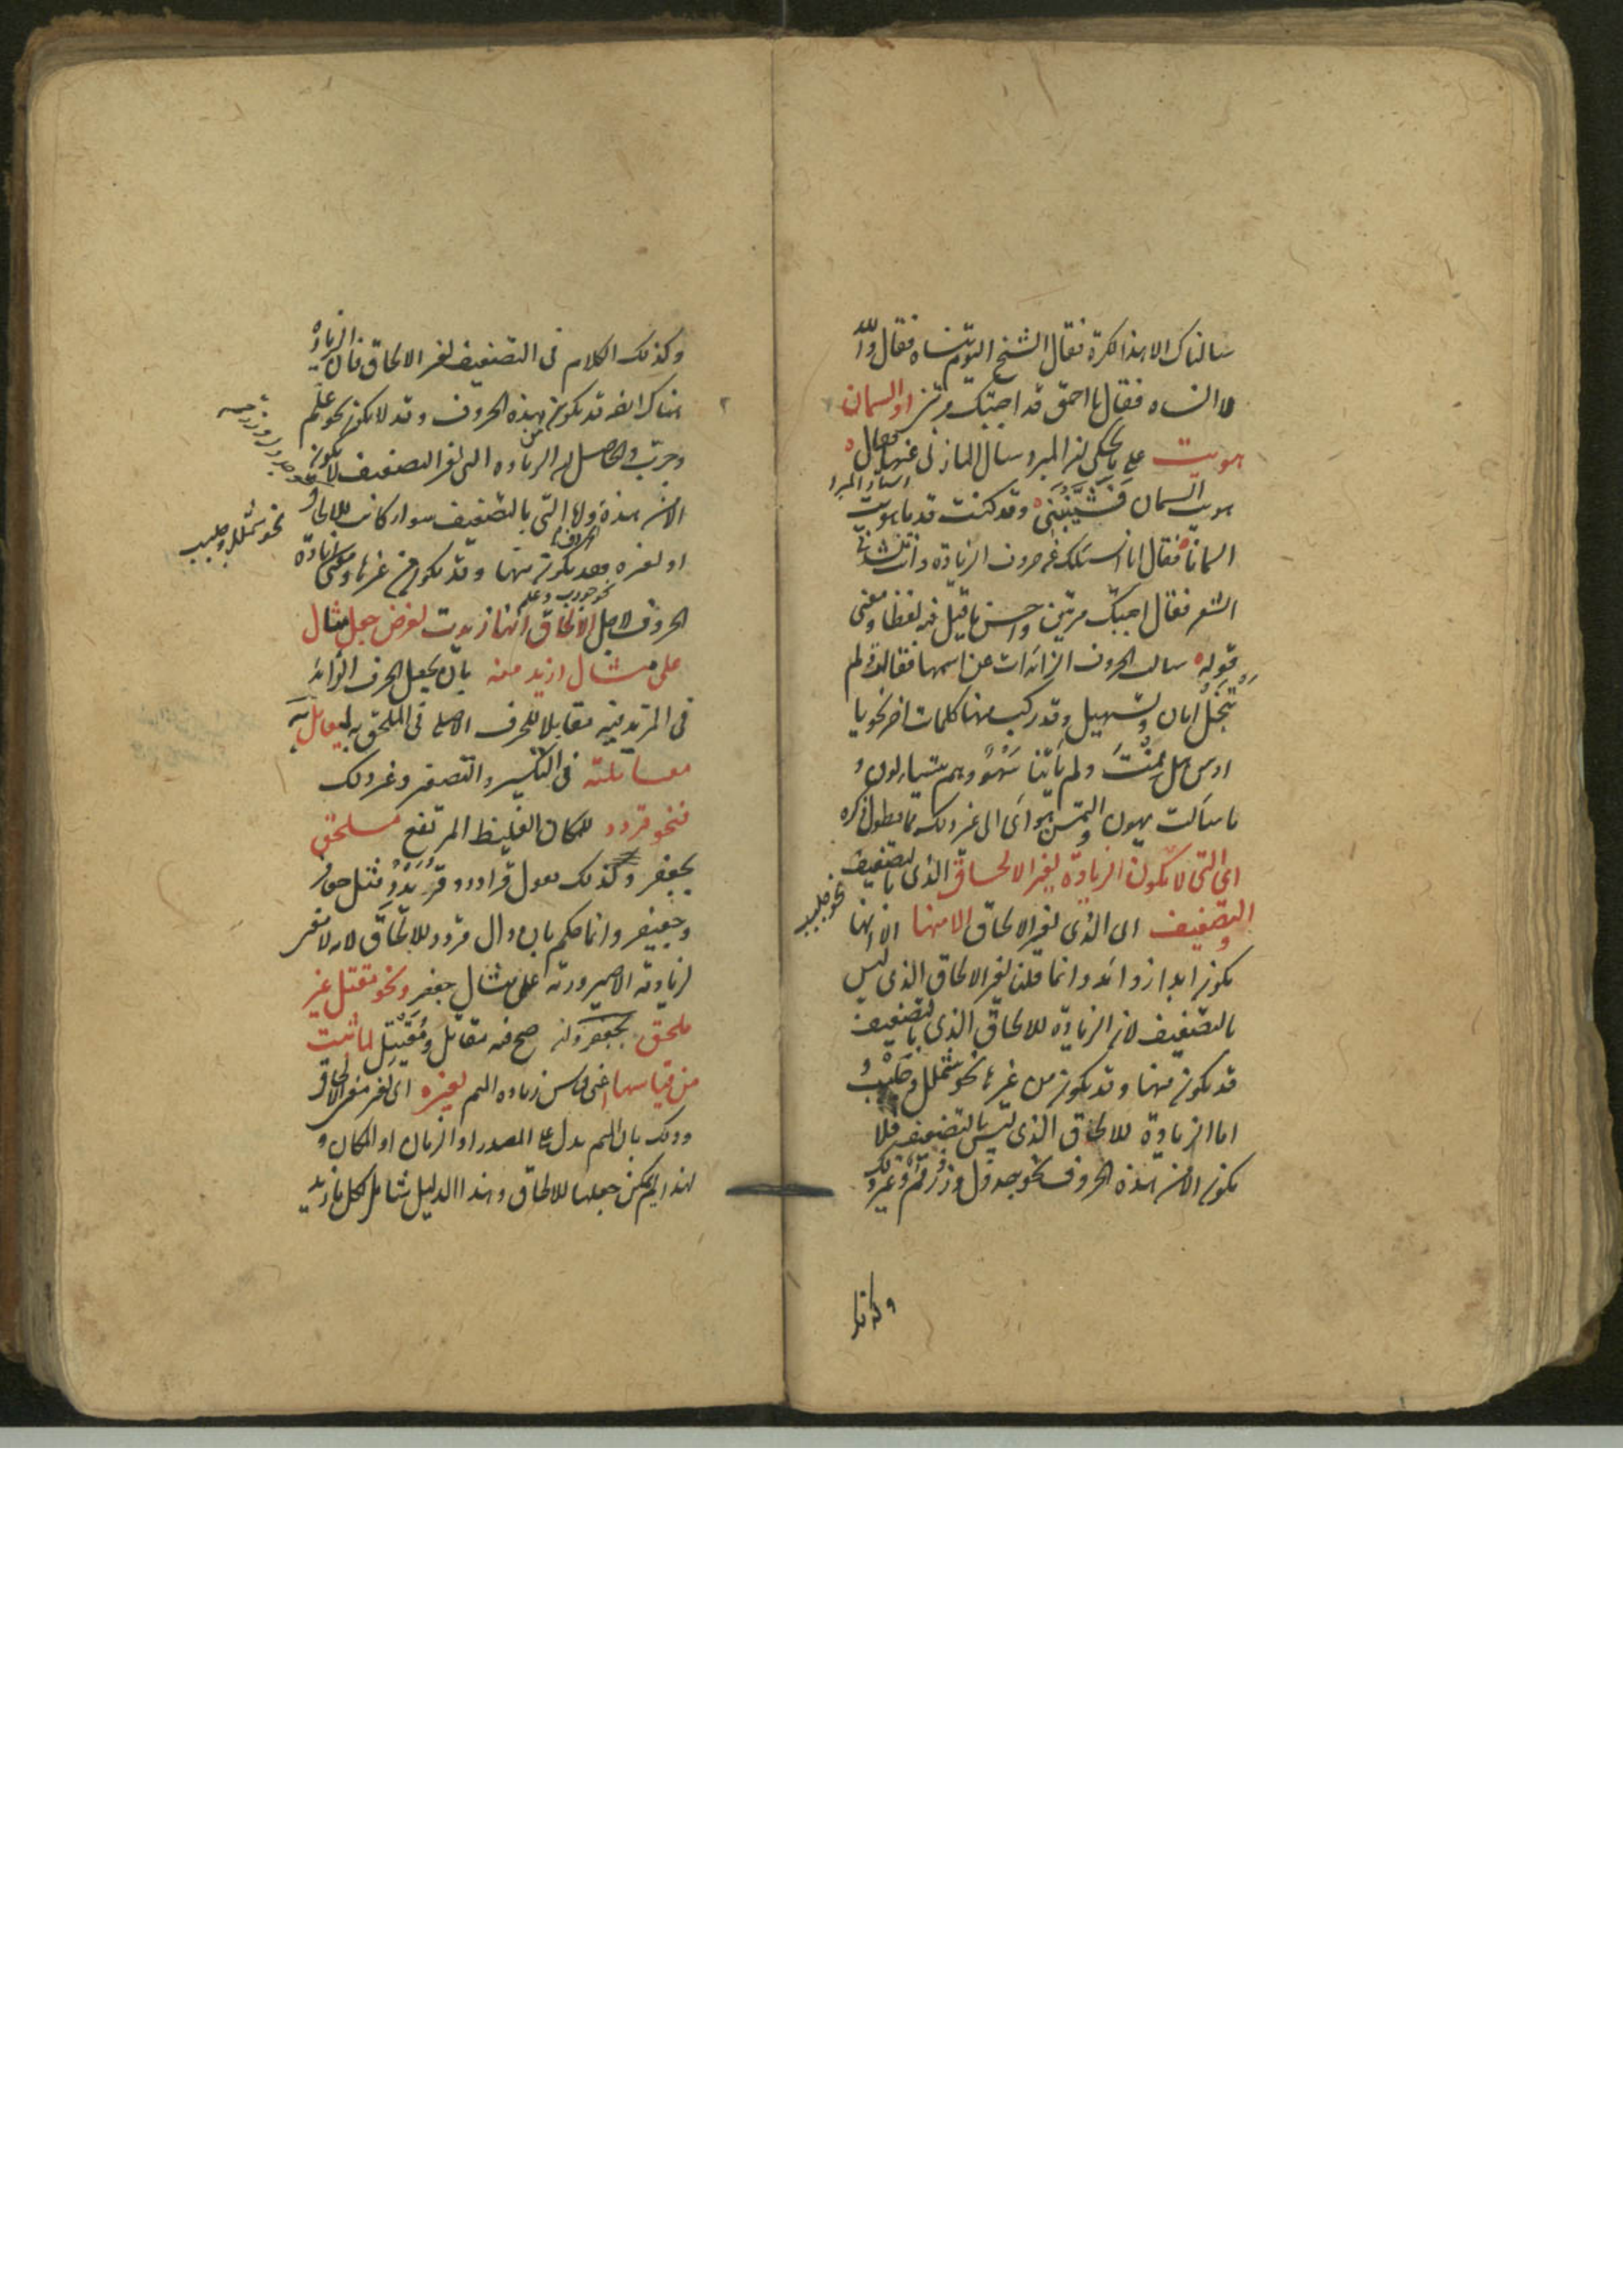 سالناك الا هذا الكرة فقال الشيخ اليوم تنساه فقال والله
لا انساه فقال يا احمق قد اجبتك مرتين او السمان
هويت على ما يحكى ان المبرد سال المازنى عنها فقال
هويت السمان فَشَيَّبْنَنى وقد كنت قدما هويت
السمانا فقال انا اسئلك عن حروف الزيادة وانت تنشدنى
الشعر فقال اجبتك مرتين واحسن ما قيل فيه لفظا ومعنى
قوله سالت الحروف الزائدات عن اسمها فقالت ولم
تبخل امان وتسهيل وقد ركب منها كلمات اخر نحو يا
اوس هل نمت ولم ياتنا سهو وهم يتساءلون و
ما سالت يهون والتمسن هواى الى غير ذلك مما يطول ذكره
اى التى لا تكون الزيادة لغير الالحاق الذى بالتضعيف
والتضعيف اى الذى لغير الالحاق الا منها الا انها
تكون ابدا زوائد وانما قلنا لغير الالحاق الذى ليس
بالتضعيف لان الزيادة للالحاق الذى بالتضعيف
قد تكون منها وقد تكون من غيرها نحو شملل وجلبب و
اما الزيادة للالحاق الذى ليس بالتضعيف فلا
تكون الا من هذه الحروف نحو جدول وزرقم وغير ذلك
نحو جلبب
وكذلك
وكذلك الكلام فى التضعيف لغير الالحاق فان الزيادة
هناك ايضا قد تكون من هذه الحروف وقد لا تكون نحو علّم
وجرّب والحاصل ان الزيادة التى لغير التضعيف لا تكون
الا من هذه واما التى بالتضعيف سواء كانت للالحاق
نحو شملل وجلبب
او لغيره فقد تكون منها وقد تكون من غيرها ومعنى زيادة
الحروف لاجل الالحاق انها زيدت لغرض جعل مثال
على مثال ازيد منه بان يجعل الحرف الزائد
فى المزيد فيه مقابلا للحرف الاصلى فى الملحق به ليعامل به
معاملته فى التكسير والتصغير وغير ذلك
فنحو قردد للمكان الغليظ المرتفع ملحق
بجعفر وكذلك تقول قرادد وقُرَيْدِد مثل جعافر
وجعيفر وانما حكم بان دال قردد للالحاق لانه لا معنى
لزيادته الا صيرورته على مثال جعفر ونحو مقتل غير
ملحق بجعفر وان صح فيه مقاتل ومُقَيْتِل لما ثبت
من قياسها اعنى قياس زيادة الميم لغيره اى لغير معنى الالحاق
وذلك بان الميم يدل على المصدر او الزمان او المكان و
لهذا لم يمكن جعلها للالحاق وهذا الدليل شامل لكل ما زيد